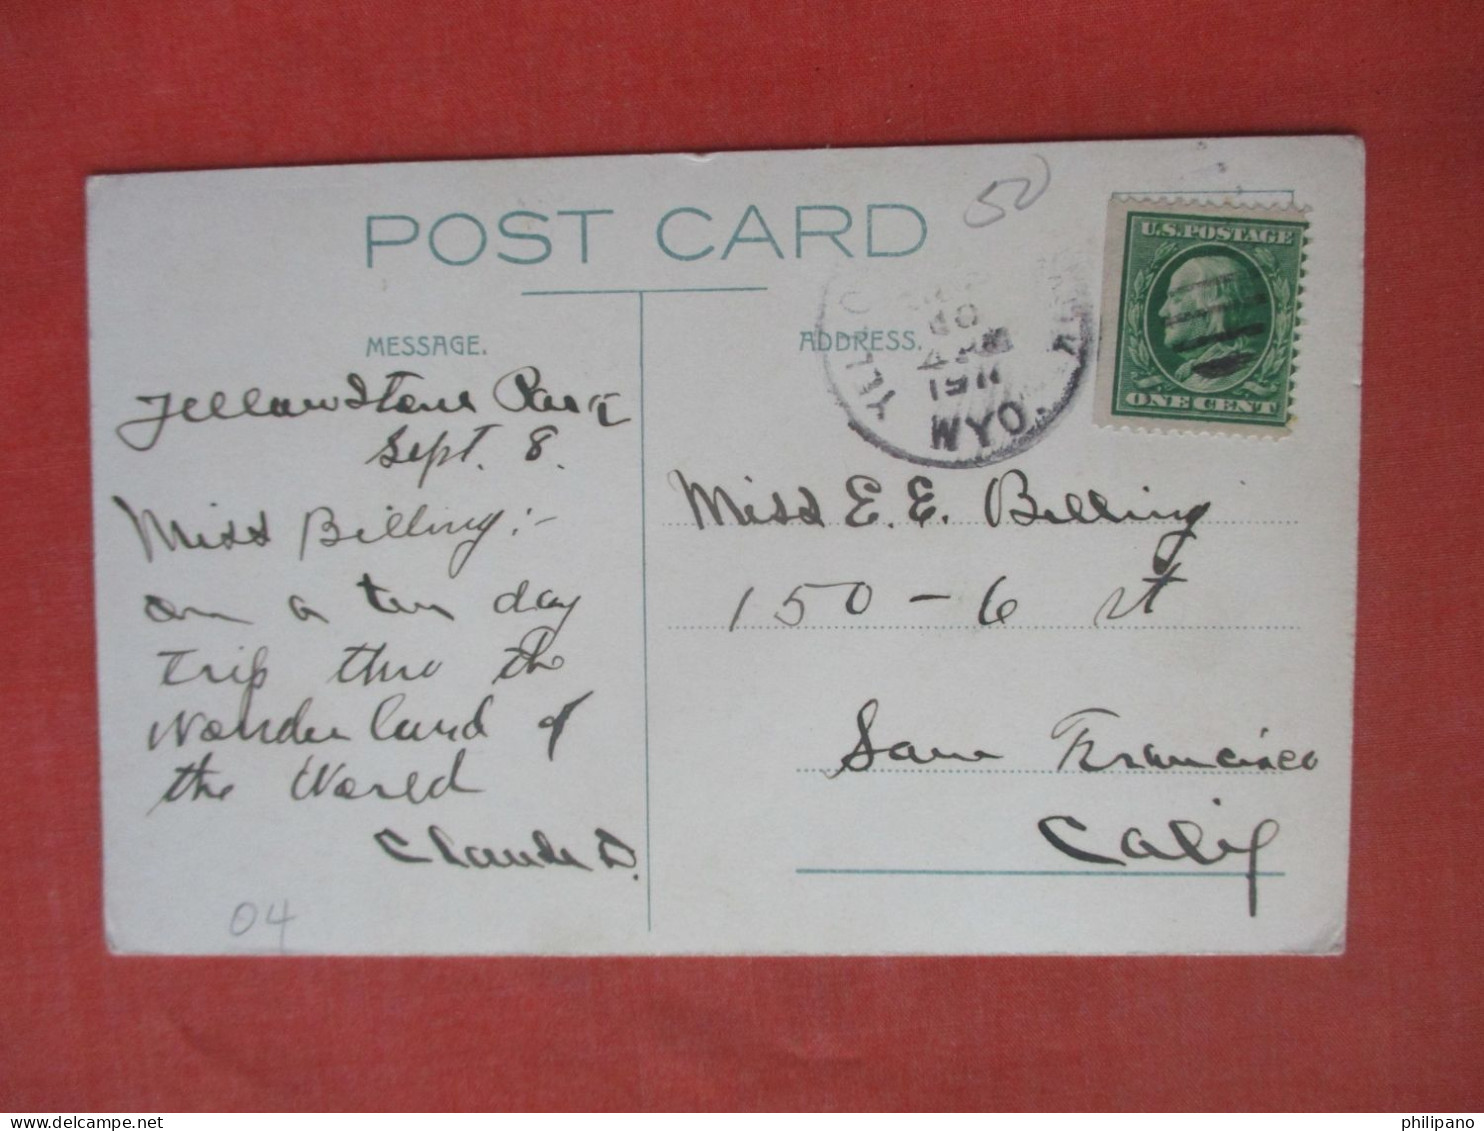 50
POST CARD
MESSAGE.
ADDRESS.
U.S. POSTAGE
ONE CENT
YELLO
WYO.
1911
Yellowstone Park
Sept. 8.
Miss Billing:-
on a ten day
trip thro the
Wonderland of
the World
Claude D.
Miss E. E. Billing
150 - 6 st
San Francisco
Calif
04
philipano